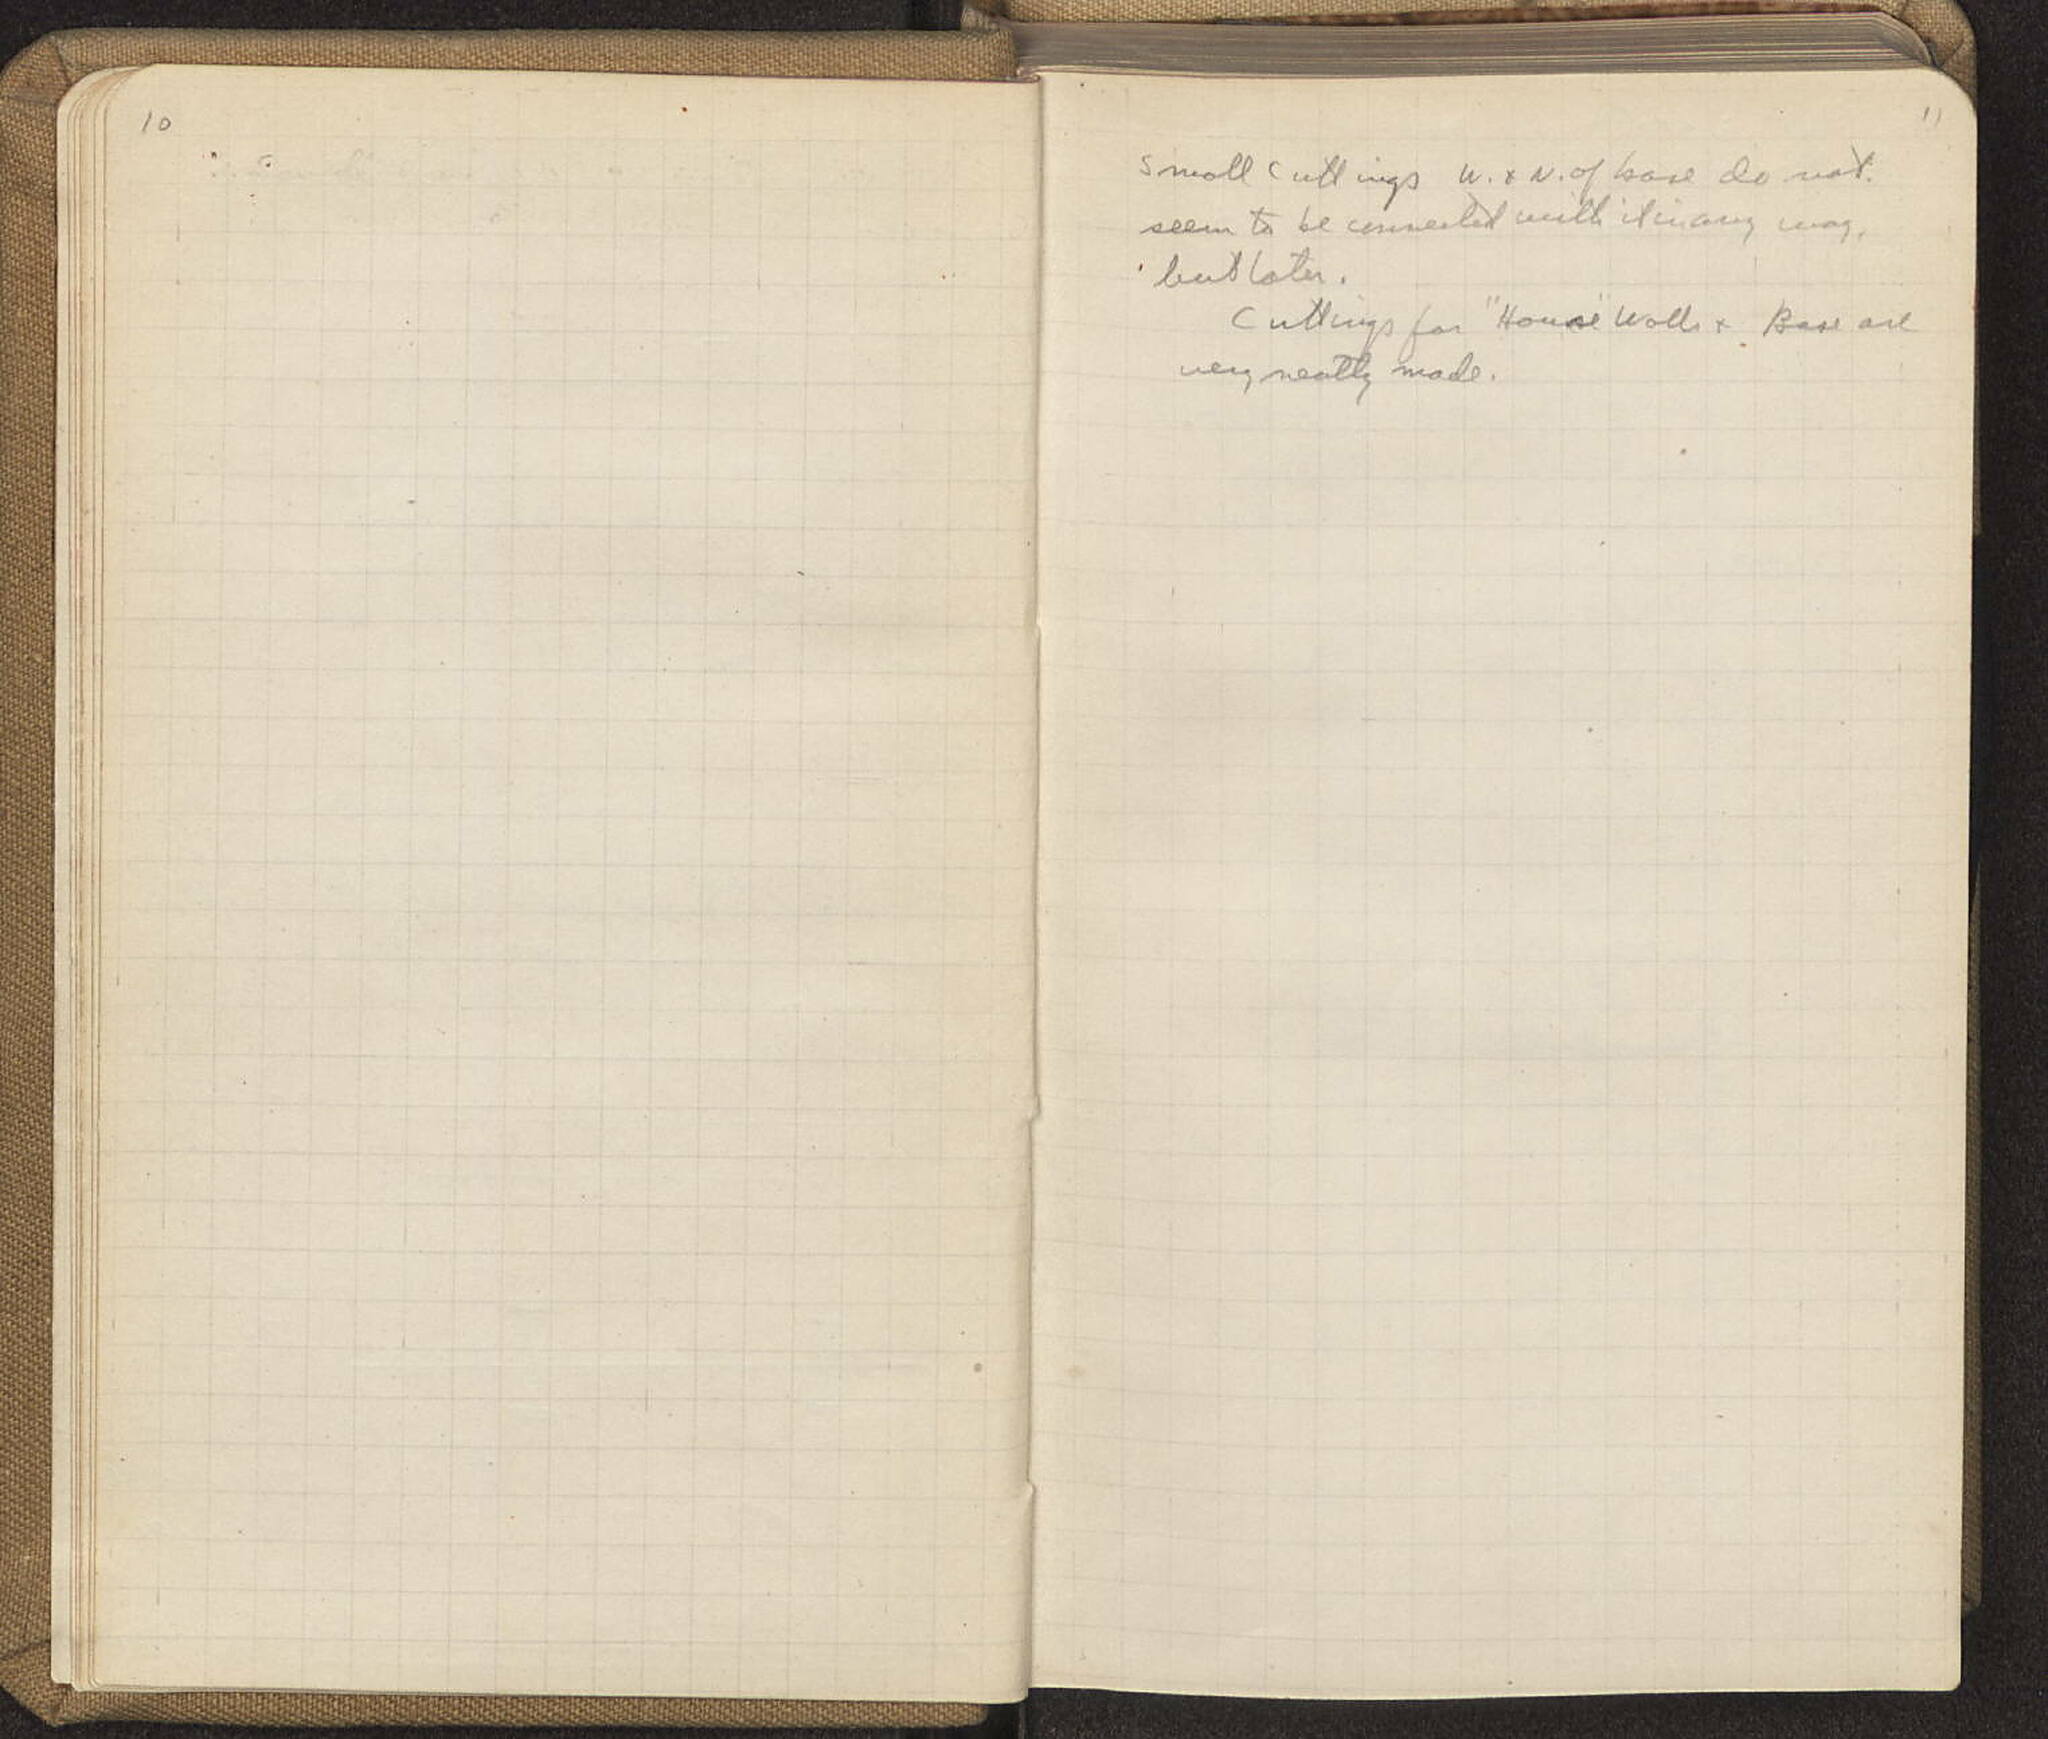 10
11
Small Cuttings W. & N. of base do not
seem to be connected with it in any way,
but later.
Cuttings for "House" Walls & Base are
very neatly made.